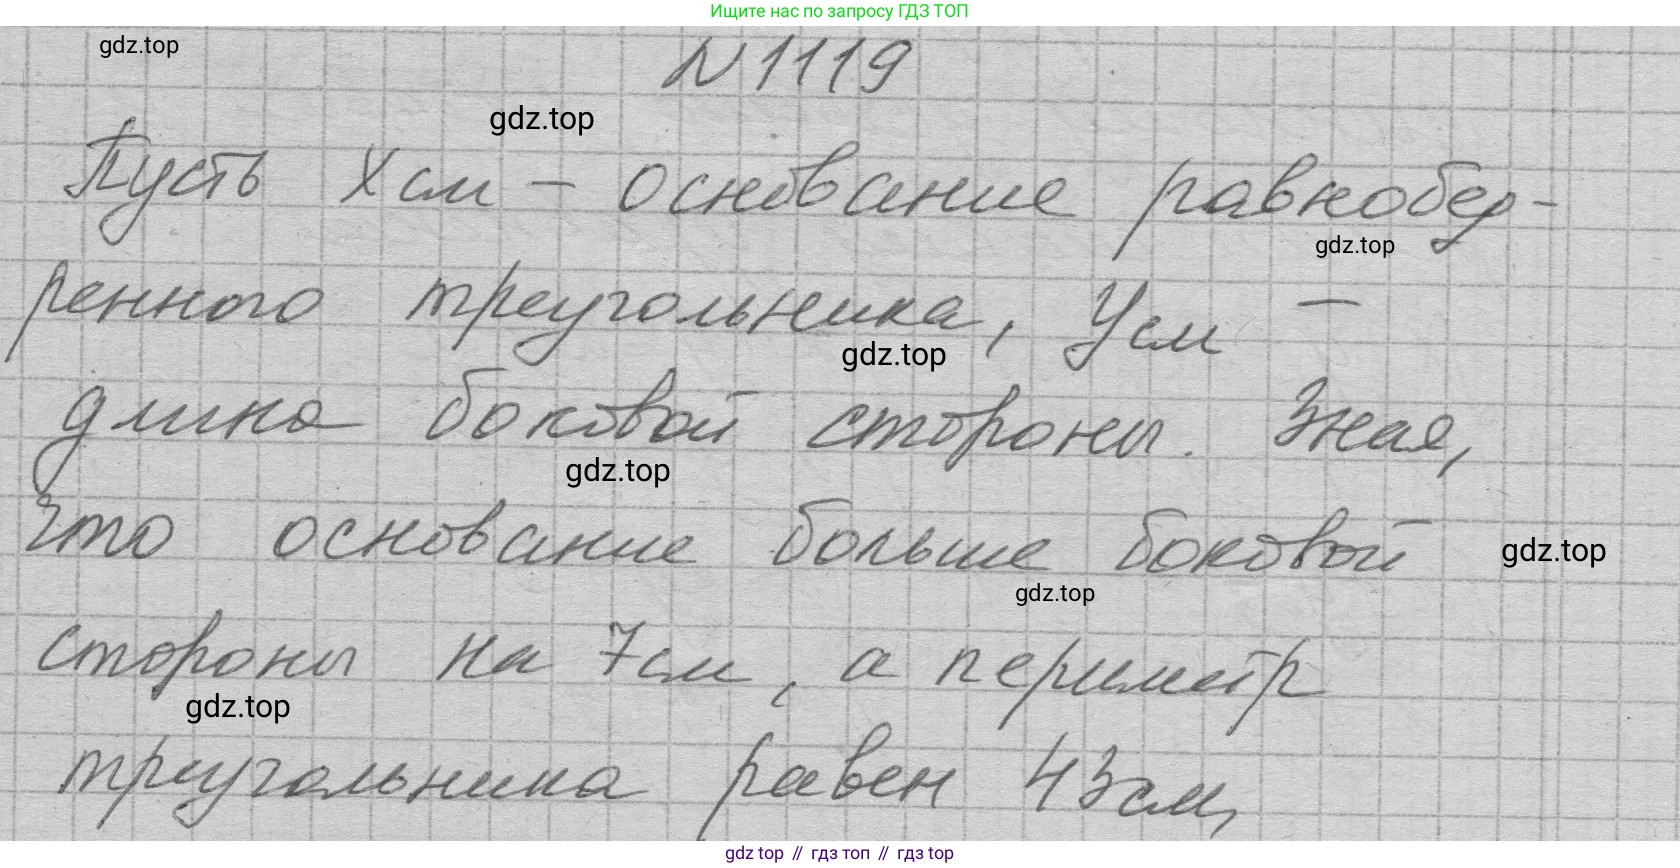 Ищите нас по запросу ГДЗ ТОП
gdz.top
N 1119
gdz.top
Пусть x см – основание равнобед-
gdz.top
ренного треугольника, y см –
gdz.top
длина боковой стороны. Зная,
gdz.top
что основание больше боковой
gdz.top
gdz.top
стороны на 7 см, а периметр
gdz.top
треугольника равен 43 см,
gdz top // гдз топ // гдз top